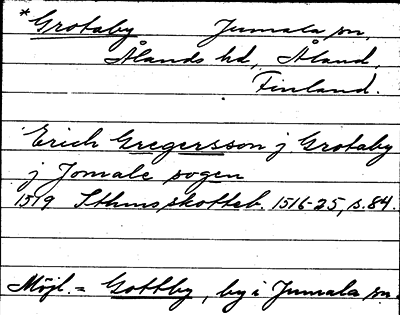 *Grotaby Jumala sn,
Ålands hd, Åland,
Finland.
Erich Gregersson j Grotaby
j Jomale sogen
1519 Sthms skotteb. 1516-25, s. 84.
Möjl. = Gottby, by i Jumala sn.